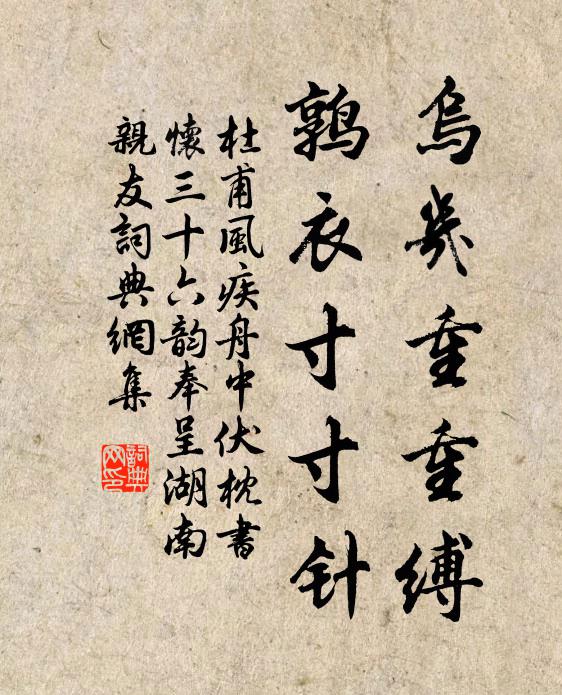 烏几重重縛
鶉衣寸寸针
杜甫風疾舟中伏枕書
懷三十六韵奉呈湖南
親友詞典網集
詞典网印